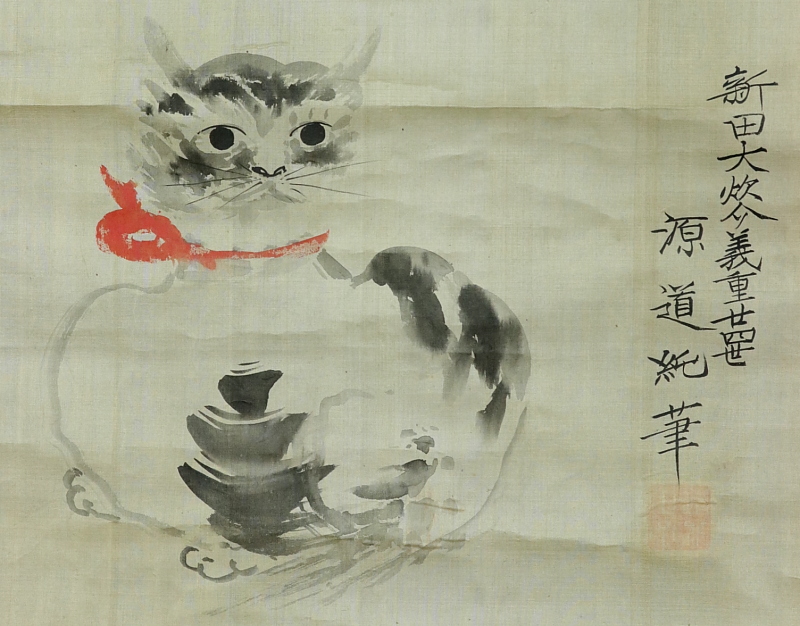 新田大炊介義重廿四世
源道純筆